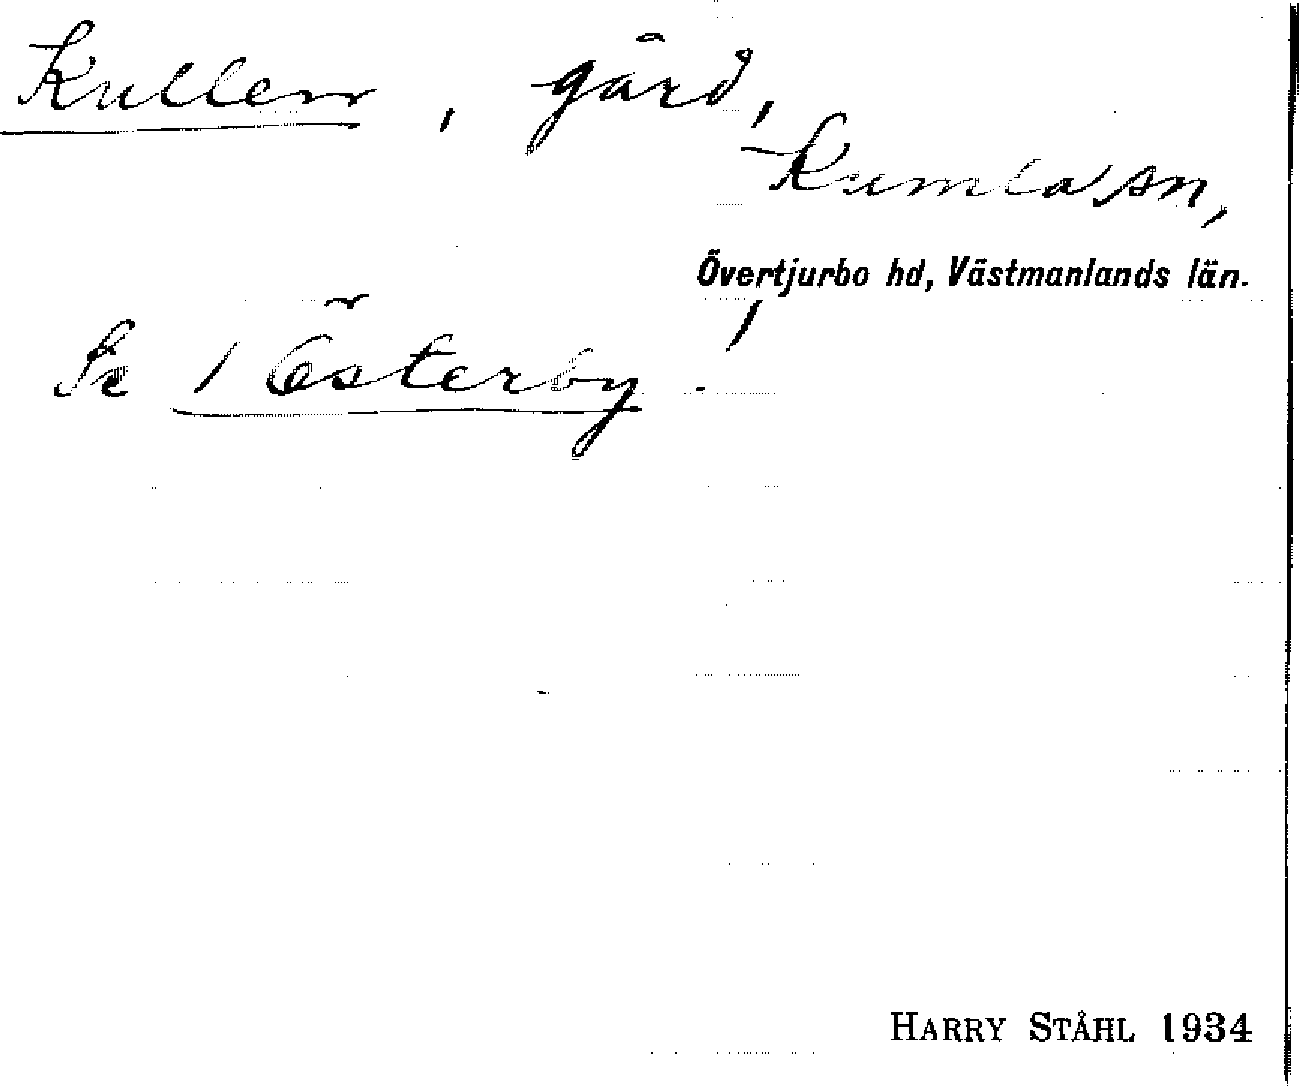 Kullen, gård,
Kumla sn,
Övertjurbo hd, Västmanlands län.
Se 1 Österby!
HARRY STÅHL 1934